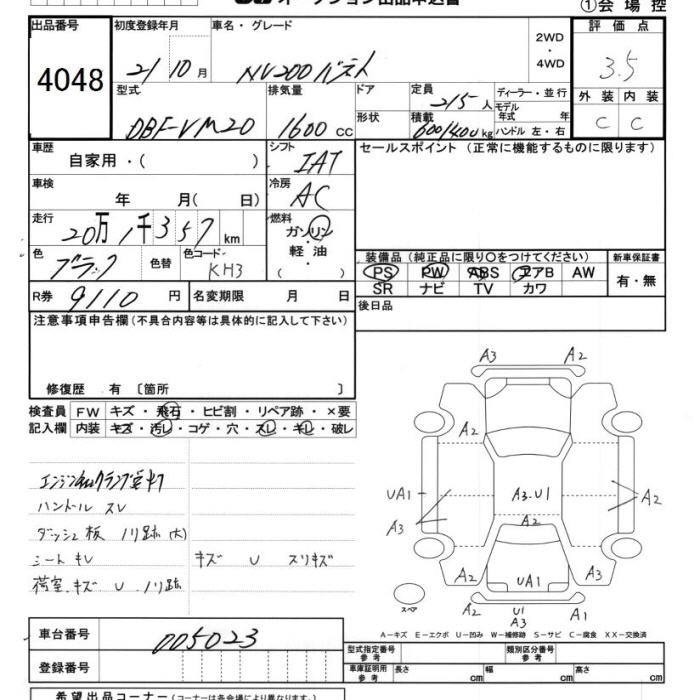 オークション出品申込書
①会場控
出品番号
4048
初度登録年月
21 10月
車名・グレード
NV200バネット
2WD
・
4WD
評価点
3.5
外装 内装
C C
型式
DBF-VM20
排気量
1600 CC
ドア
形状
定員
2/5人
積載
600/400kg
ディーラー・並行
モデル
年式 年
ハンドル 左・右
車歴
自家用・( )
シフト
IAT
セールスポイント (正常に機能するものに限ります)
車検
年 月( 日)
冷房
AC
走行
20万1千357 km
燃料
ガソリン
・
軽油
( )
色
ブラック
色替
色コード
KH3
装備品 (純正品に限り○をつけてください)
PS PW ABS エアB AW
SR ナビ TV カワ
新車保証書
有・無
R券
9110 円
名変期限 月 日
後日品
注意事項申告欄(不具合内容等は具体的に記入して下さい)
修復歴 有 〔箇所 〕
検査員
記入欄
FW キズ・飛石・ヒビ割・リペア跡・×要
内装 キズ・汚レ・コゲ・穴・スレ・キレ・破レ
ハンドル スレ
ダッシュ板 ノリ跡(大)
シート キレ キズ U スリキズ
荷室.キズ U ノリ跡
A3 A2
A2
UA1 A3.U1 A2
A3 A2
A2 UA1 A3
スペア
U1
A3
A1
A－キズ E－エクボ U－凹み W－補修跡 S－サビ C－腐食 XX－交換済
車台番号
005023
登録番号
型式指定番号
参考
類別区分番号
参考
車庫証明用
参考
長さ cm 幅 cm 高さ cm
希望出品コーナー(コーナーは各会場により異なります)